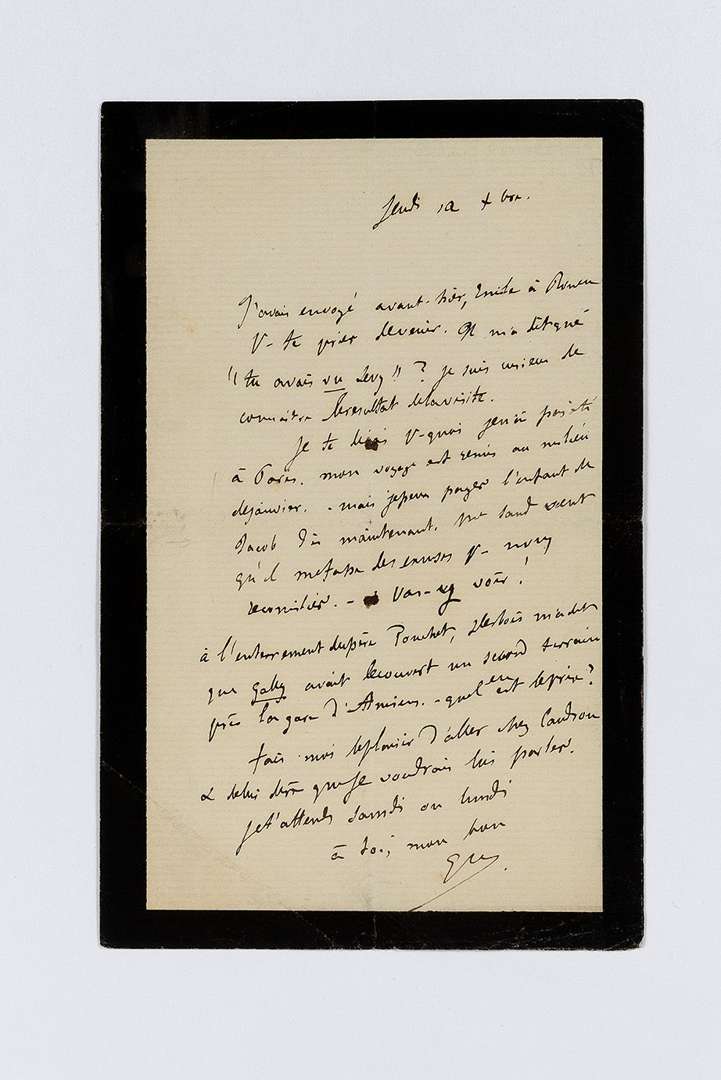 Jeudi 12 Xbre.
J'avais envoyé avant-hier, Emile à Rouen
p- te prier de venir. Il m'a dit que
"tu avais vu Levy"? je suis curieux de
connaître le résultat de la visite.
Je te dirai p- quoi je n'ai pas été
à Paris. mon voyage est remis au milieu
de janvier. - mais je peux payer l'enfant de
Jacob dès maintenant. Me Sand veut
qu'il me fasse des excuses p- nous
reconcilier. - Vas-y voir!
à l'enterrement du père Pouchet, m'a dit
que Gally avait découvert un second terrain
près la gare d'Amiens. - quel en est le prix?
fais-moi le plaisir d'aller chez Caudron
& de lui dire que je voudrais lui parler.
je t'attends samedi ou lundi
à toi, mon bon